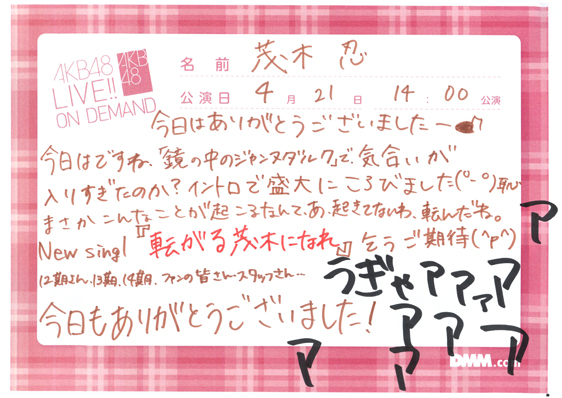 AKB48
LIVE!!
ON DEMAND
AKB
48
名前 茂木 忍
公演日 4月21日 14:00公演
今日はありがとうございましたー
今日はですね、「鏡の中のジャンヌダルク」で、気合いが
入りすぎたのか?イントロで盛大にころびました(°-°)恥
まさかこんなことが起こるなんて、あ、起きてないわ、転んだね。
New singl 『転がる茂木になれ』乞うご期待(^p^)
12期さん、13期、14期、ファンの皆さん、スタッフさん…
今日もありがとうございました!
うぎゃアアァア
ア
ア
ア
ア
ア
ア
DMM.com